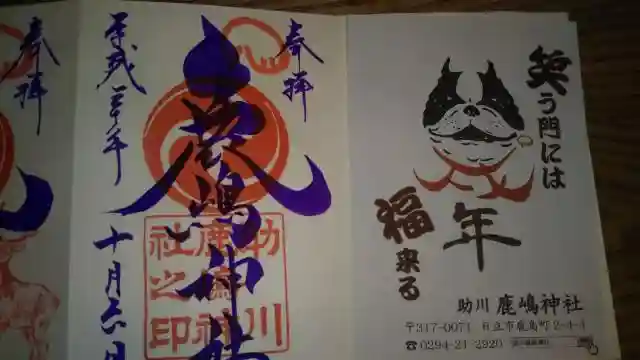 奉拝
平成三十年
十月六日
鹿嶋神社
奉拝
助川
鹿嶋神
社之印
笑う門には
福来る
年
助川 鹿嶋神社
〒317-0071 日立市鹿島町2-4-4
☎0294-21-2920